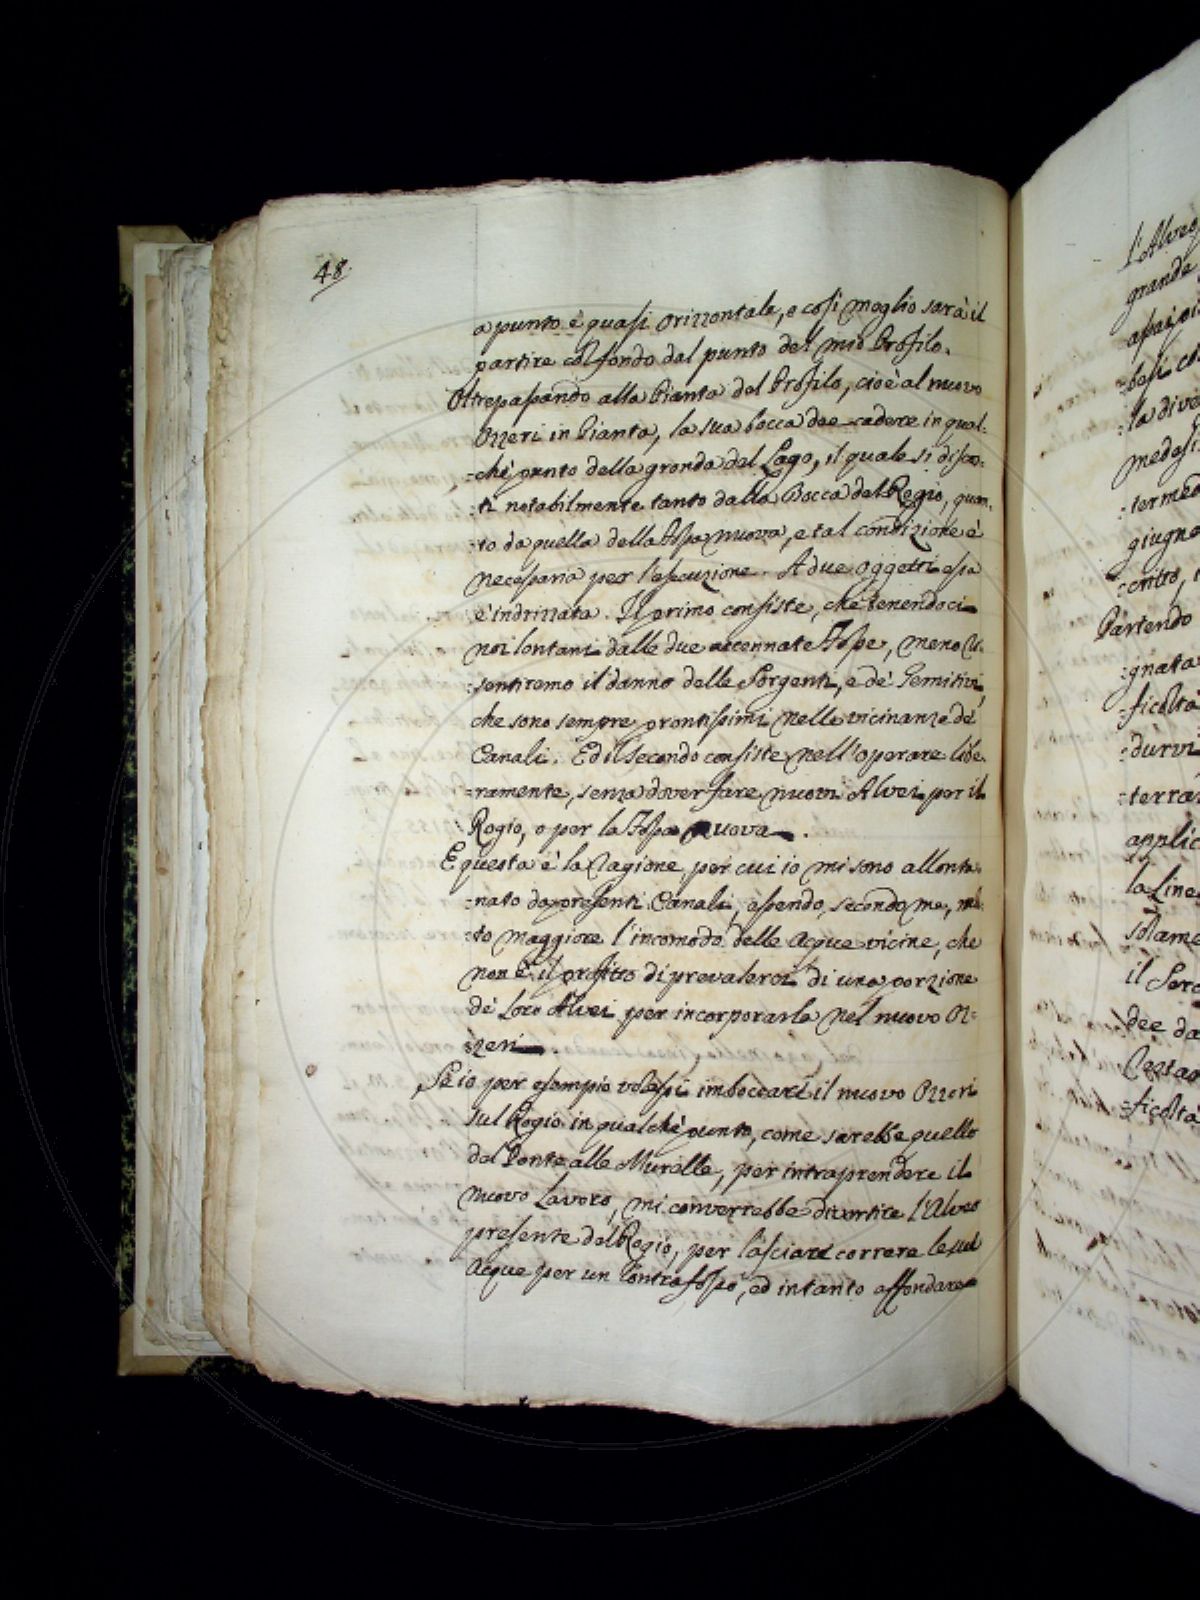 48.
a punto è quasi orizzontale, e così meglio sarà il
partire col fondo dal punto del mio Profilo.
Oltrepassando alla Pianta del Profilo, cioè al nuovo
Ozzeri in Pianta, la sua bocca dee cadere in qual:
:chè punto della gronda del Lago, il quale si disco:
:ti notabilmente tanto dalla Bocca del Rogio, quan:
:to da quella della Fossa nuova, e tal condizione è
necessaria per l'esecuzione. A due oggetti essa
è indrizzata. Il primo consiste, che tenendoci
noi lontani dalle due accennate Fosse, meno ri:
:sentiremo il danno delle Sorgenti, e de' Gemitivi,
che sono sempre prontissimi nelle vicinanze de'
Canali. Ed il secondo consiste nell'operare libe:
:ramente, senza dover fare nuovi Alvei per il
Rogio, o per la Fossa nuova.
E questa è la ragione, per cui io mi sono allonta:
:nato da presenti Canali, essendo, secondo me, mol:
:to maggiore l'incomodo delle acque vicine, che
non è il profitto di prevalerci di una porzione
de' Loro Alvei per incorporarla nel nuovo Oz:
:zeri
Se io per esempio volessi imboccare il nuovo Ozzeri
sul Rogio in qualchè punto, come sarebbe quello
del Ponte alle Muralle, per intraprendere il
nuovo Lavoro, mi converrebbe divertire l'Alveo
presente del Rogio, per lasciare correre le sue
Acque per un Contrafosso, ed intanto affondare
l'Alveo
grande
assai
bassi
:la dive
medesi
:terme
giugne
Partendo
:gnata
:ficolta
:durvi
terra
applic
la Line
solame
il Serc
dee da
:ficoltà